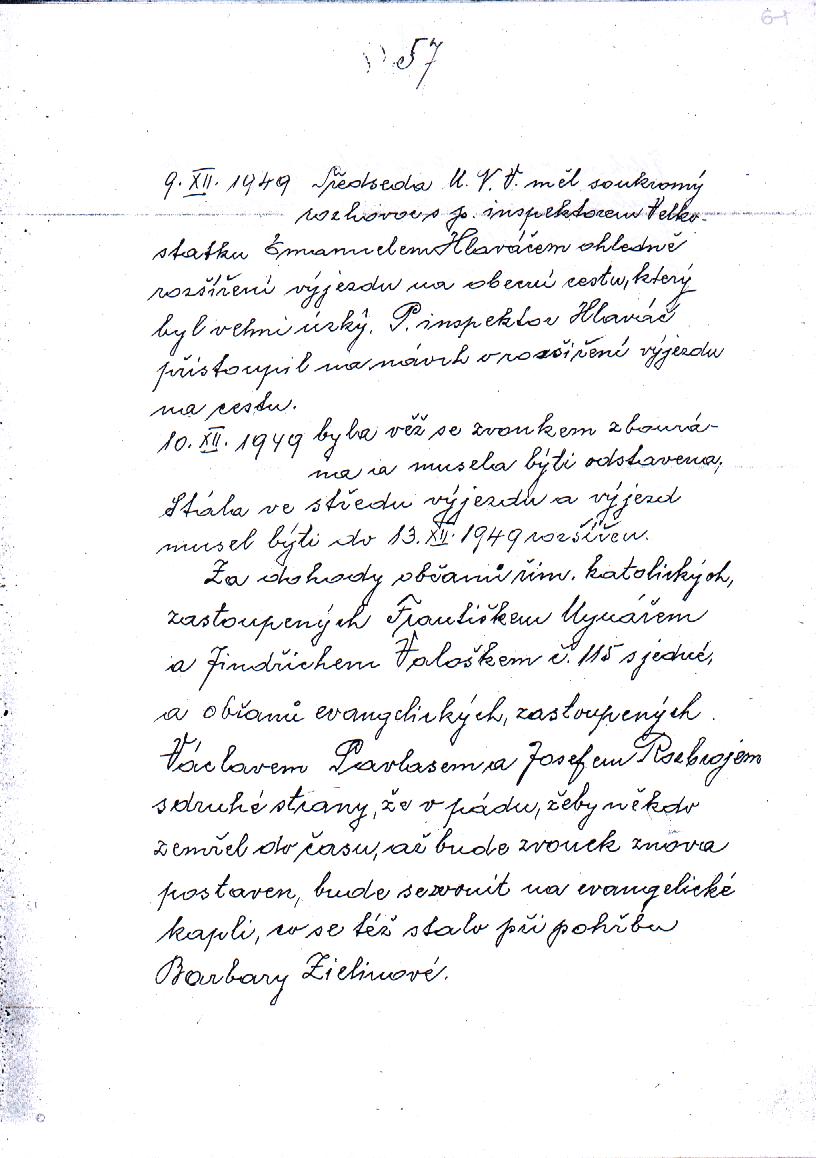 61
57
9. XII. 1949 Předseda M. N. V. měl soukromý
rozhovor s p. inspektorem Velko-
statku Emanuelem Hlaváčem ohledně
rozšíření výjezdu na obecní cestu, který
byl velmi úzký. P. inspektor Hlaváč
přistoupil na návrh o rozšíření výjezdu
na cestu.
10. XII. 1949 byla věž se zvonkem zbourá-
na a musela býti odstavena,
Stála ve středu výjezdu a výjezd
musel býti do 13. XII. 1949 rozšířen.
Za dohody občanů řím. katolických,
zastoupených Františkem
a Jindřichem Valoškem č. 115 s jedné,
a občanů evangelických, zastoupených
Václavem Pavlasem a Josefem Rozbrojem
s druhé strany, že v pádu, žeby někdo
zemřel do času, až bude zvonek znova
postaven, bude se zvonit na evangelické
kapli, co se též stalo při pohřbu
Barbary Zielinové.